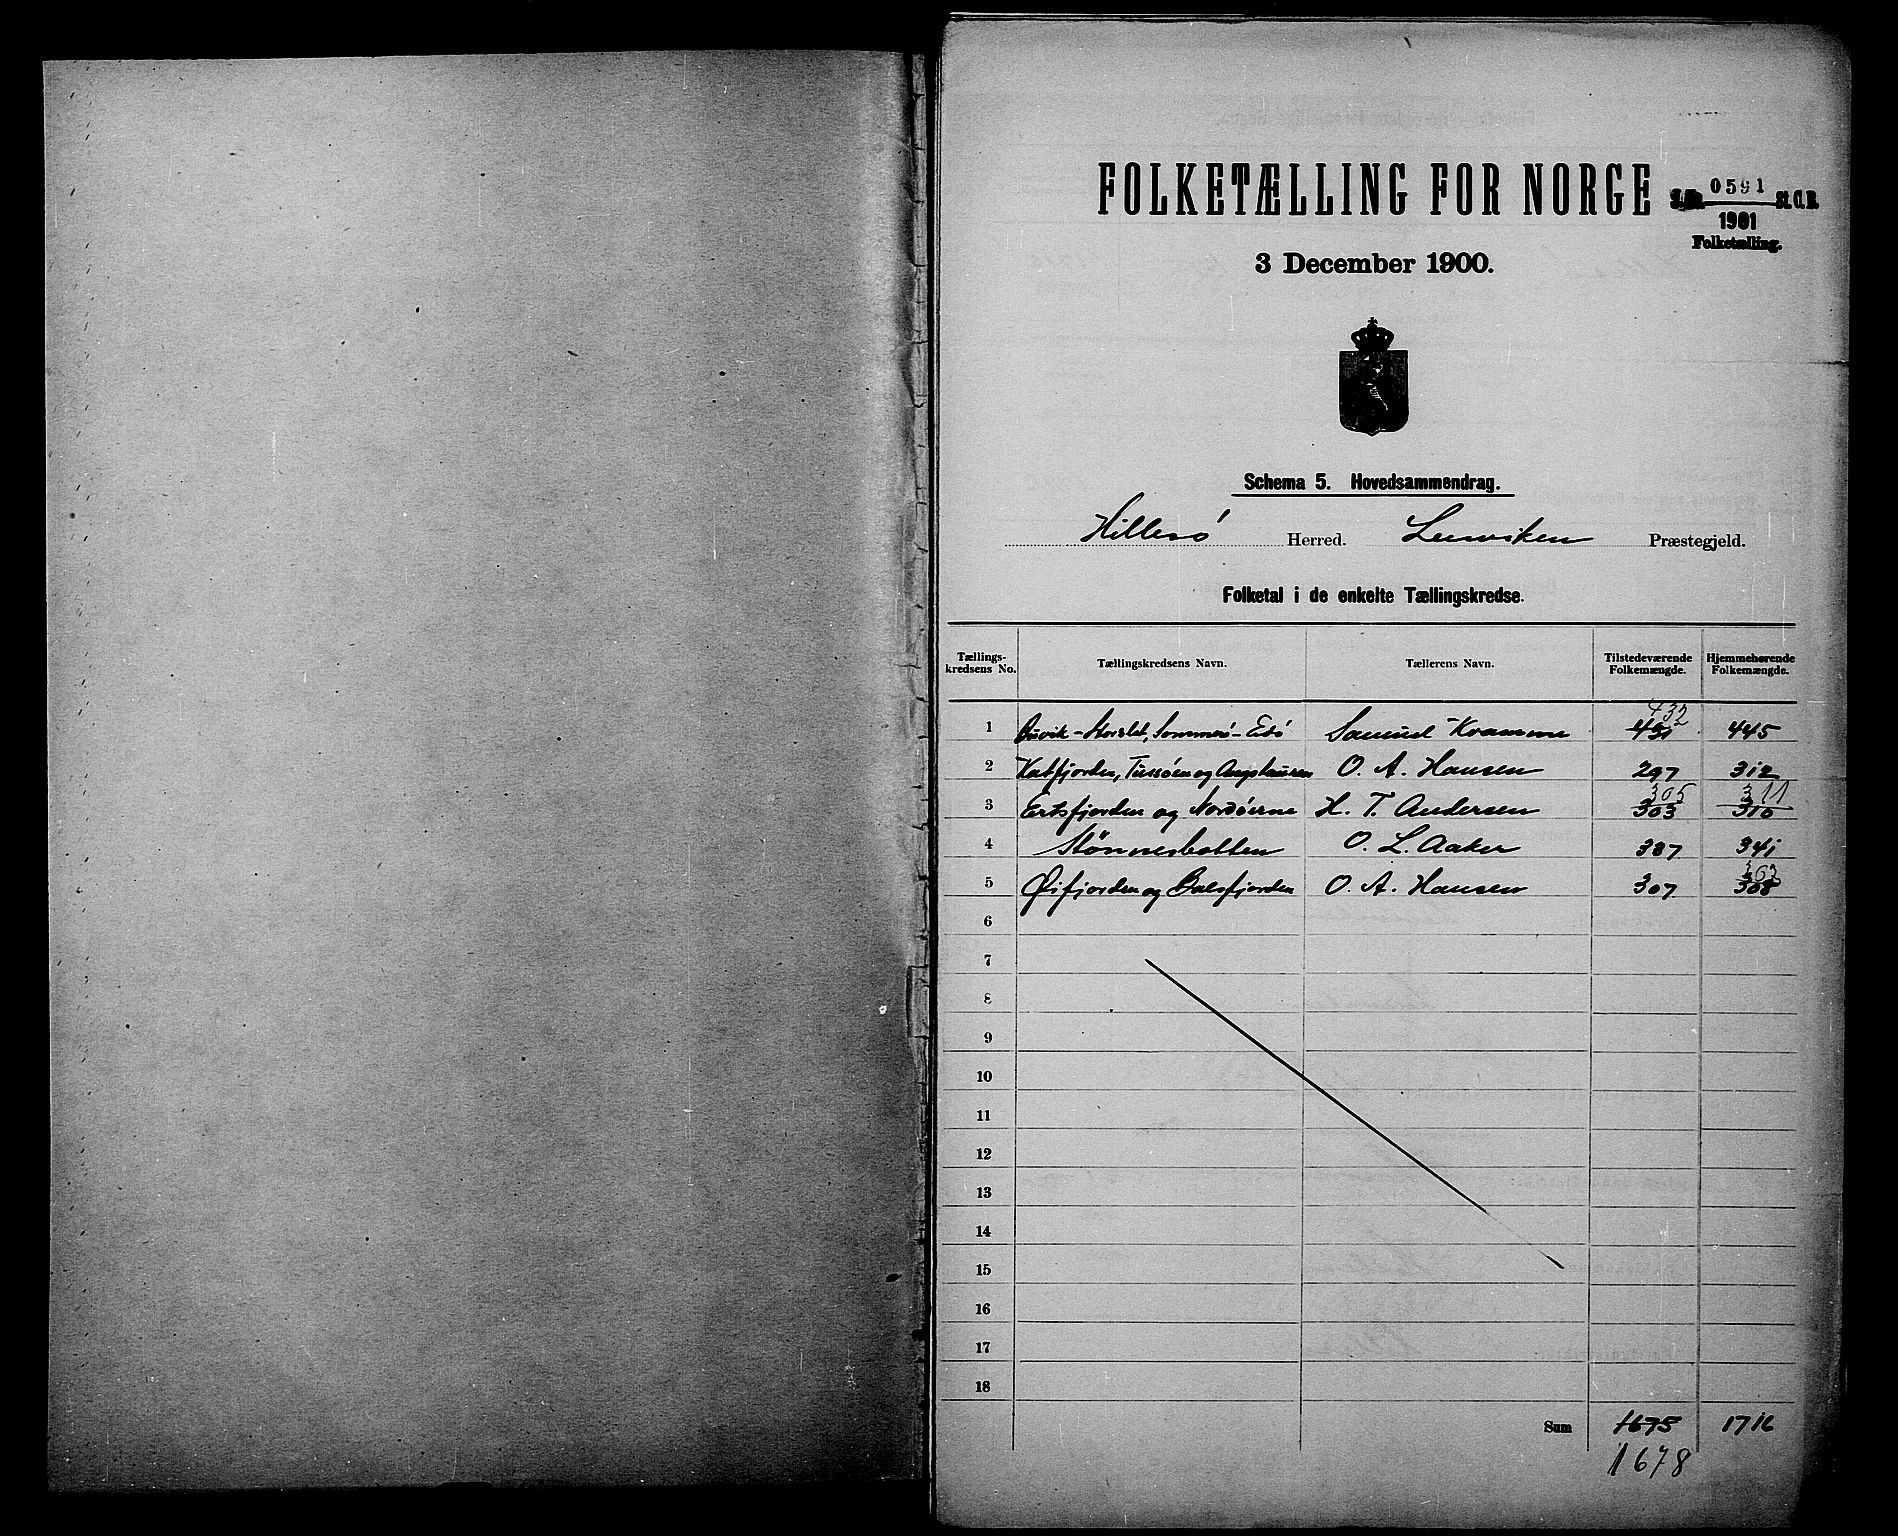 FOLKETÆLLING FOR NORGE
S. No. 0591 St. C. B.
1901
Folketælling.
3 December 1900.
Schema 5. Hovedsammendrag.
Hillesö Herred. Lenviken Præstegjeld.
Folketal i de enkelte Tællingskredse.
Tællings-kredsens No. Tællingskredsens Navn. Tællerens Navn. Tilstedeværende Folkemængde. Hjemmehørende Folkemængde.
432
1 Buvik - Storslet, Sommerö - Edö Samuel Kramme 431 445
2 Katfjorden, Tussöen og Angstauren O. A. Hansen 297 312
305 311
3 Ersfjorden og Nordöerne H. T. Andersen 303 310
4 Stönnesbotten O. L. Aaker 337 341
5 Øifjorden og Balsfjorden O. A. Hansen 307 308
6
7
8
9
10
11
12
13
14
15
16
17
18
Sum 1675 1716
1678